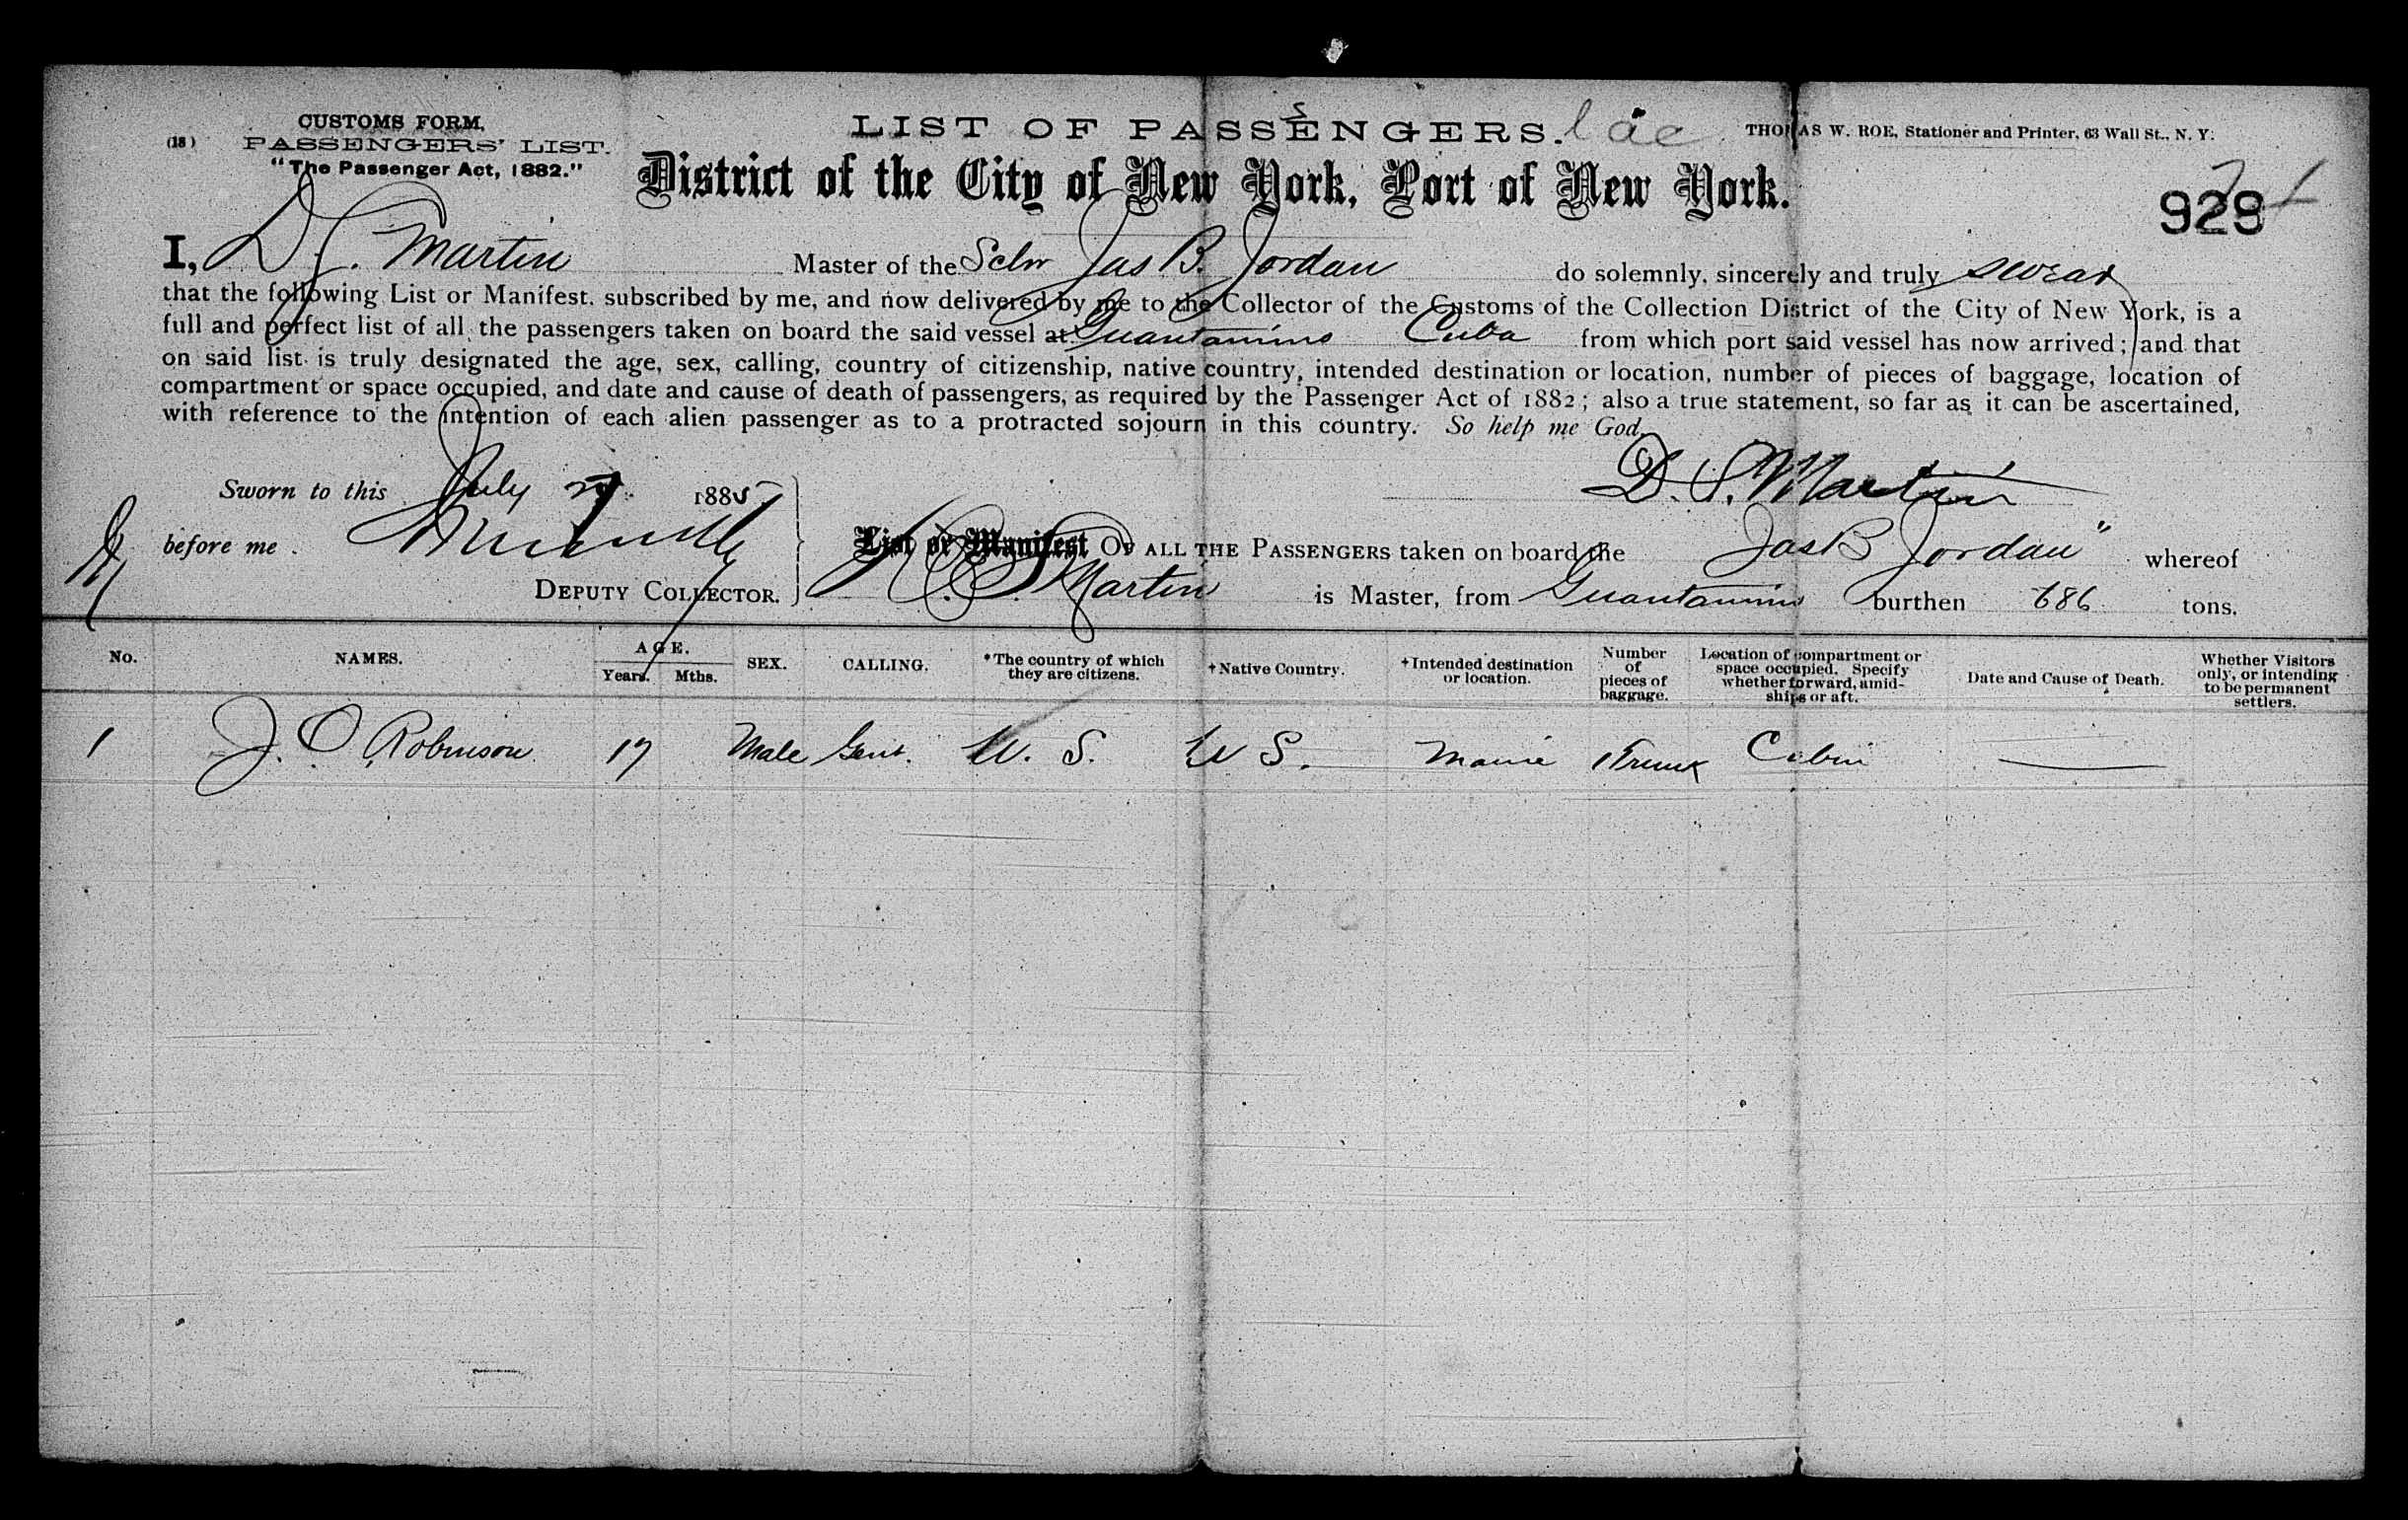 CUSTOMS FORM.
(18) PASSENGERS' LIST.
"The Passenger Act, 1882."
LIST OF PASSENGERS.
THOMAS W. ROE, Stationer and Printer, 63 Wall St., N. Y.
District of the City of New York, Port of New York.
929
I, D. S. Martin Master of the Schr Jas B. Jordan do solemnly, sincerely and truly swear
that the following List or Manifest, subscribed by me, and now delivered by me to the Collector of the Customs of the Collection District of the City of New York, is a
full and perfect list of all the passengers taken on board the said vessel at Guantamino Cuba from which port said vessel has now arrived; and that
on said list is truly designated the age, sex, calling, country of citizenship, native country, intended destination or location, number of pieces of baggage, location of
compartment or space occupied, and date and cause of death of passengers, as required by the Passenger Act of 1882; also a true statement, so far as it can be ascertained,
with reference to the intention of each alien passenger as to a protracted sojourn in this country. So help me God.
D. S. Martin
Sworn to this July 1885
before me
DEPUTY COLLECTOR.
List or Manifest OF ALL THE PASSENGERS taken on board the Jas B Jordan" whereof
D. S. Martin is Master, from Guantamino burthen 686 tons.
No. NAMES. AGE. Years. Mths. SEX. CALLING. *The country of which they are citizens. +Native Country. +Intended destination or location. Number of pieces of baggage. Location of compartment or space occupied. Specify whether forward, amidships or aft. Date and Cause of Death. Whether Visitors only, or intending to be permanent settlers.
1 J. O. Robinson 17 Male Gent. U. S. U S. Maine 1 Trunk Cabin